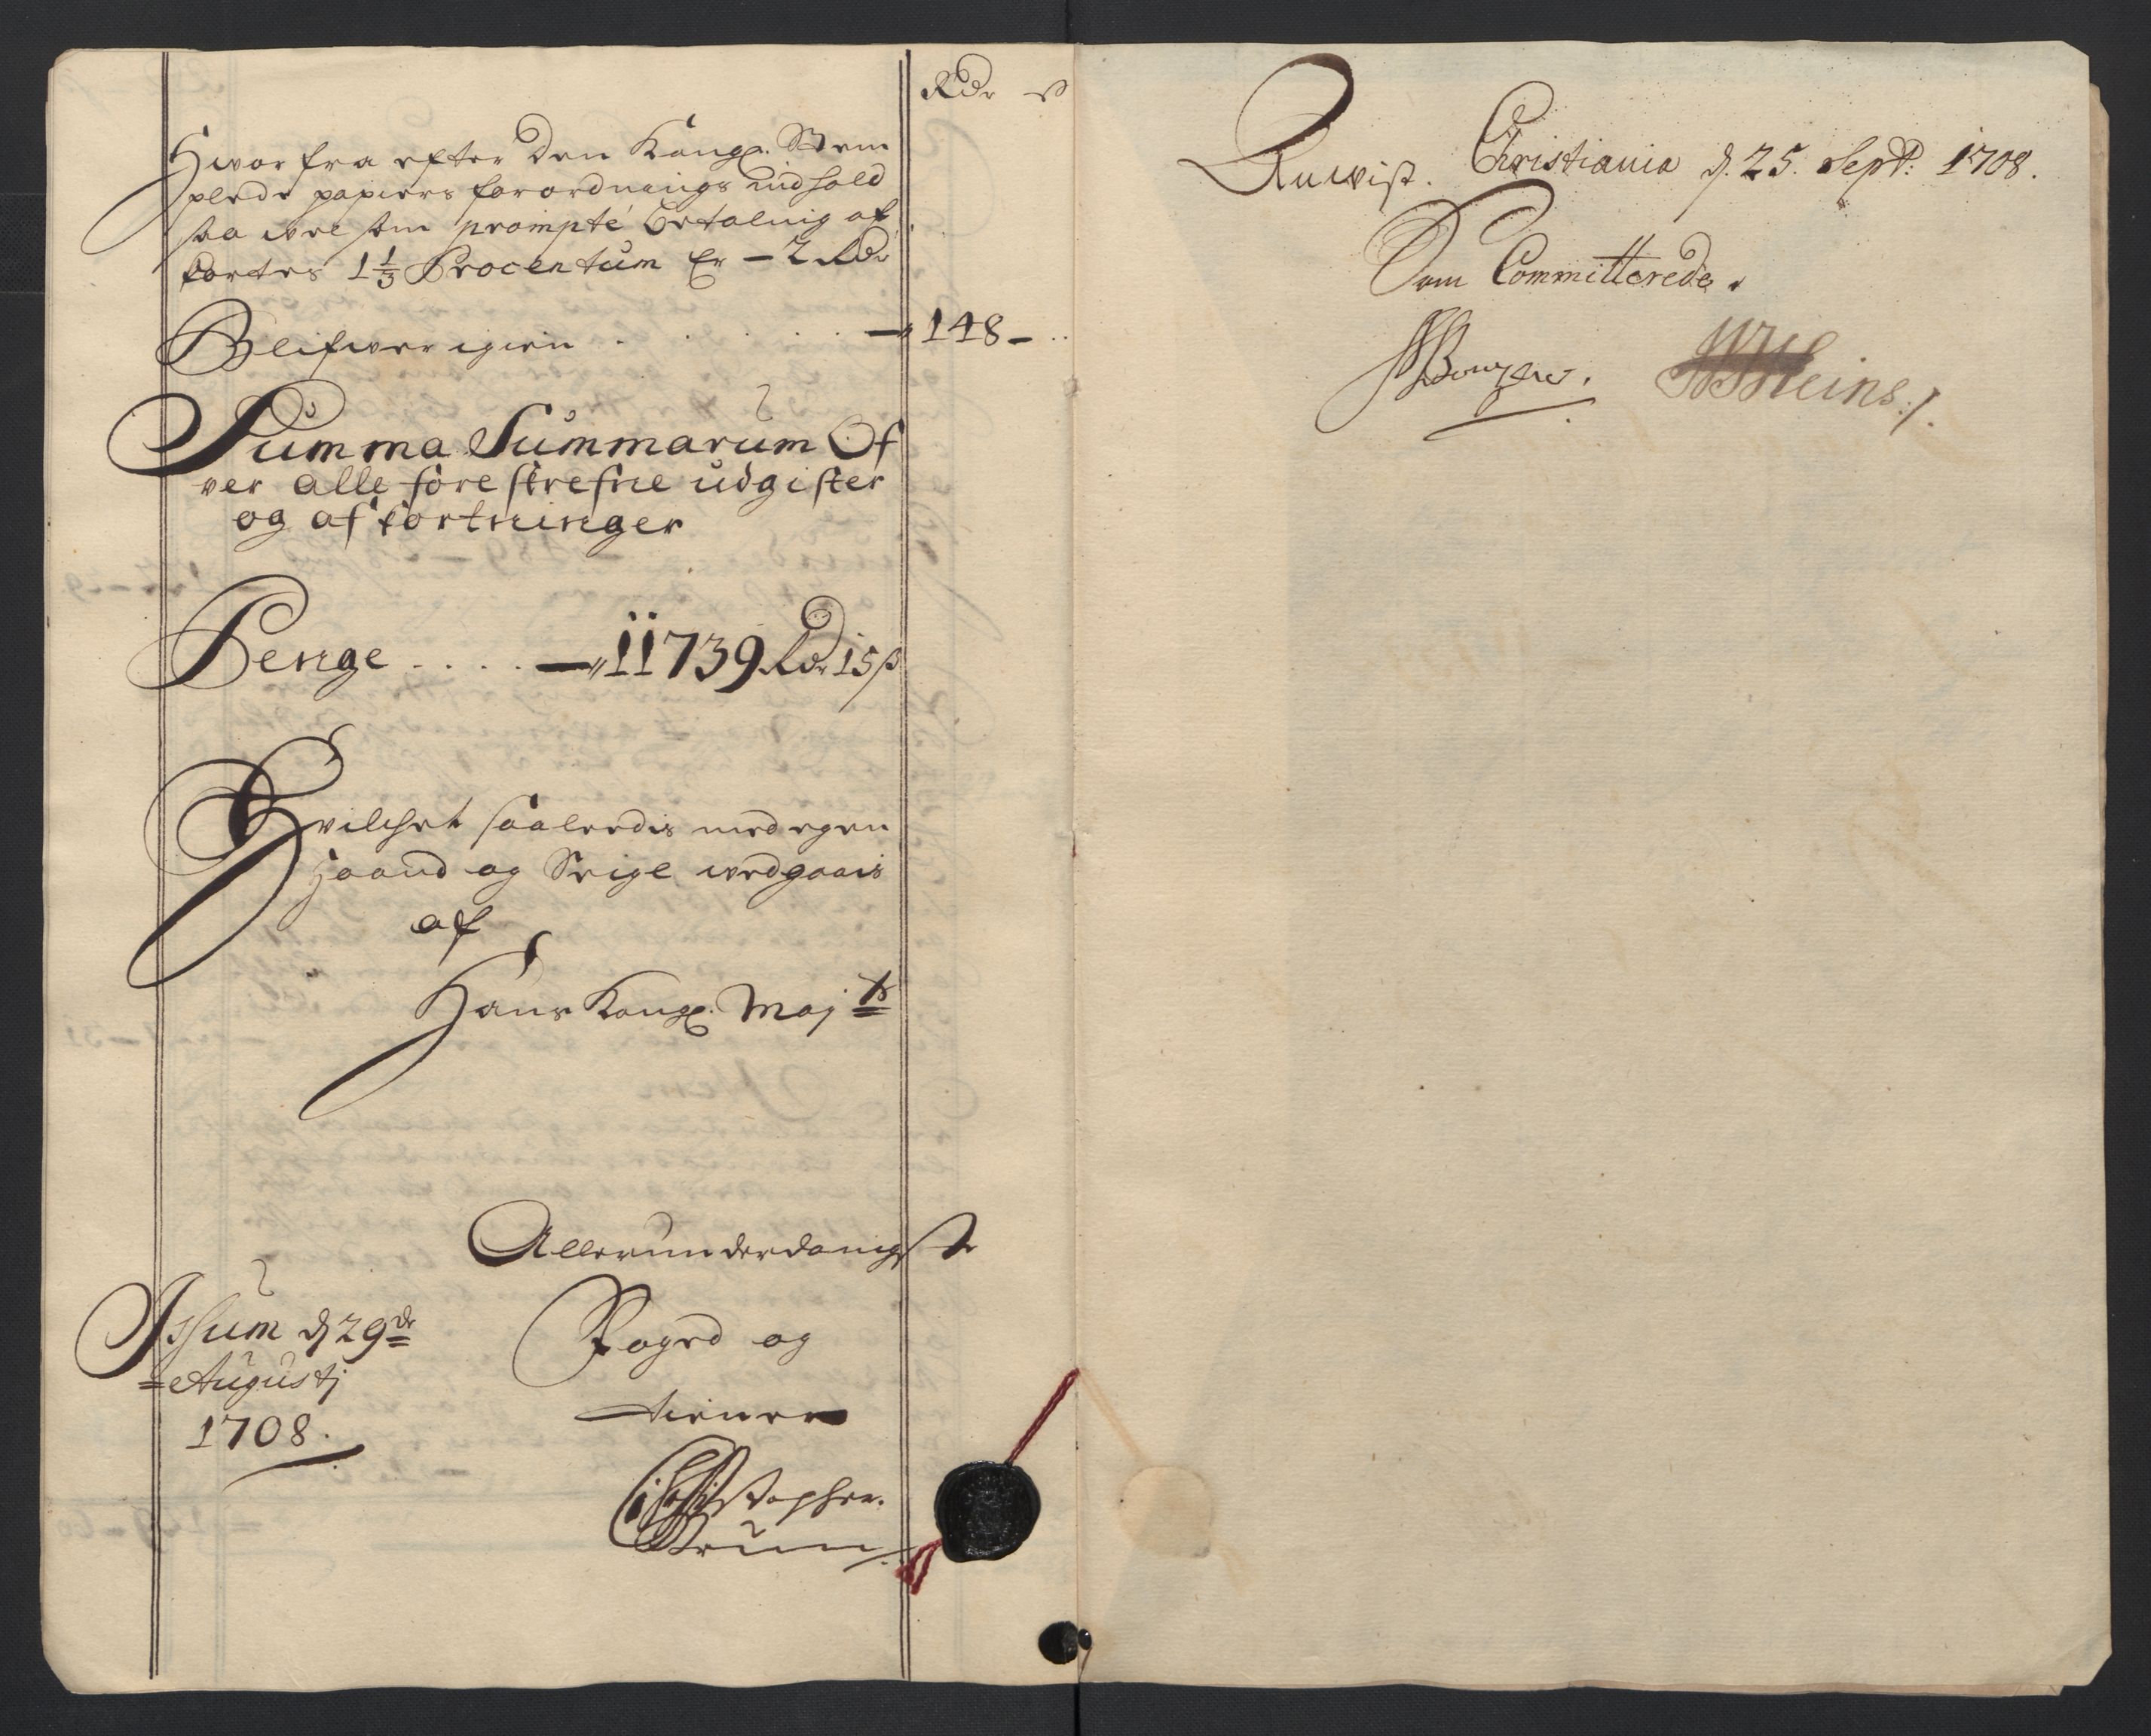 Rdr ß
Hvor fra efter den Kongl. Stem
plede papiers forordnings indhold
saa vel som prompte betaling af
kortes 1 1/3 Procentum Er — 2 Rdr
Blifver igien . . . . — 148 –
Summa Summarum Of
ver alle fore skrefne udgifter
og af kortninger
Penge . . . . — 11739 Rdr 15 ß
Hvilchet saaleedis med egen
Haand og Seigl vedgaais
af
Hans Kongl. Maj ts
Allerunderdanigste
Foged og
tiener
Christopher
Brun
d 29 de
Augustj
1708.
Revist. Christiania d. 25. Sept: 1708.
Som Committerede.